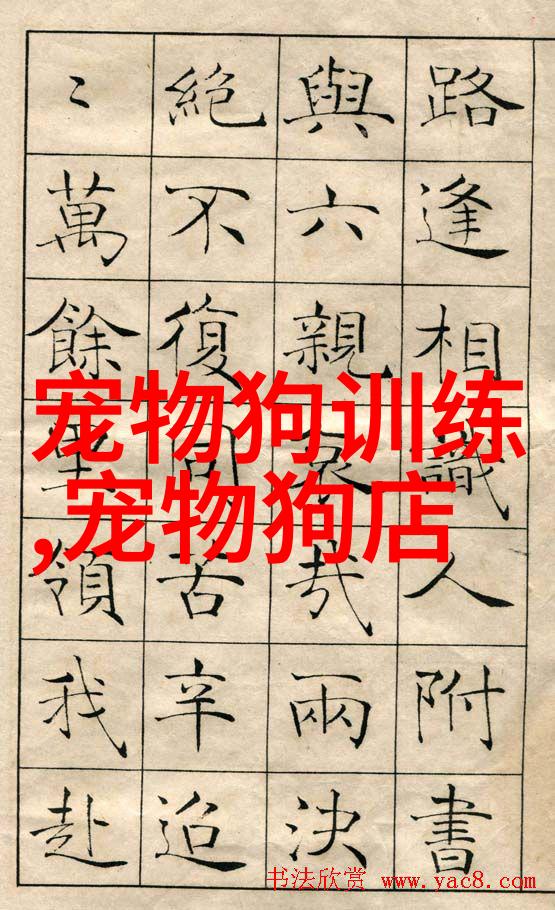 路逢相識人附書
與六親哀哉兩決
絕不復同苦辛迢
〻萬餘里領我赴
宠物狗训练
,宠物狗店
书法欣赏 www.yac8.com